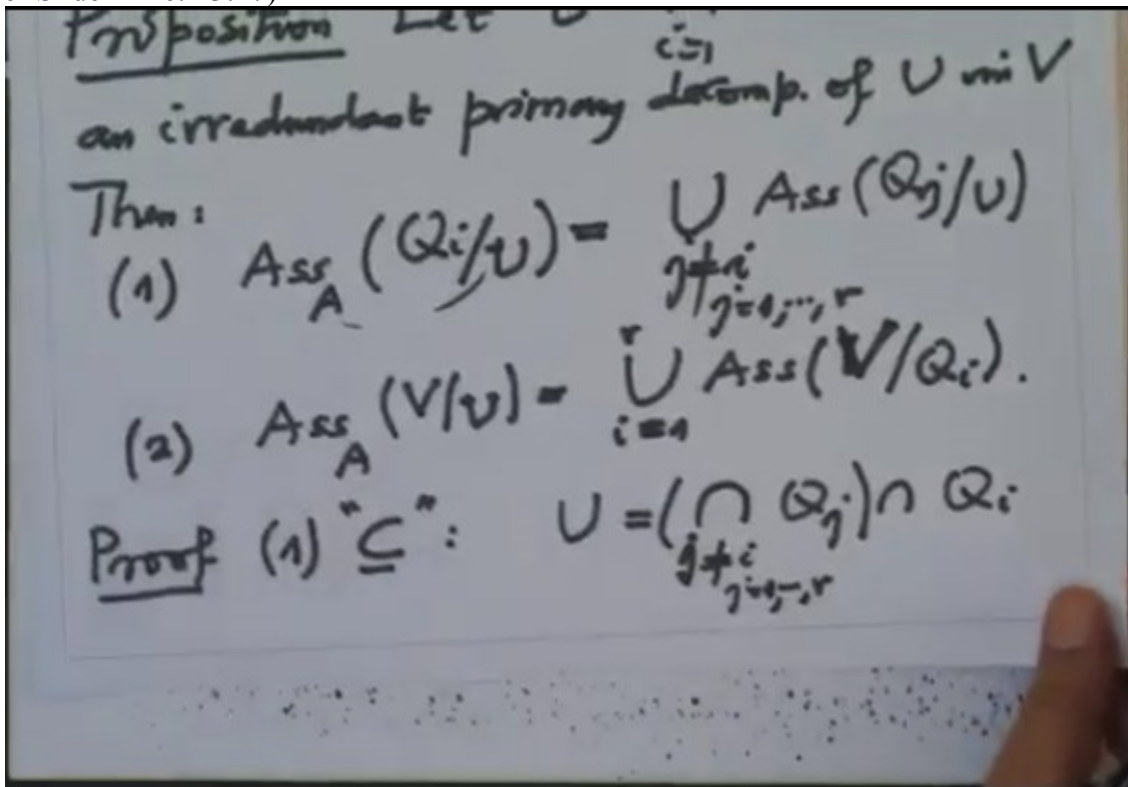 Proposition Let U
i=1
an irredundant primary decomp. of U in V
Then:
(1) Ass_A (Qi/U) = ⋃_{j≠i, j=1,…,r} Ass(Qj/U)
(2) Ass_A (V/U) = ⋃_{i=1}^{r} Ass(V/Qi).
Proof (1) "⊆": U = (⋂_{j≠i, j=1,…,r} Qj) ∩ Qi